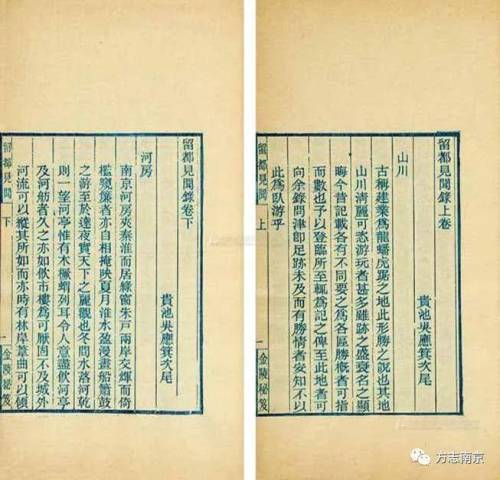 留都見聞錄上卷
貴池吳應箕次尾
山川
古稱建業爲龍蟠虎踞之地此形勝之說也其地
山川清麗可恣游玩者甚多雖跡之盛衰名之顯
晦今昔記載各有不同要之爲各區勝槪者可指
而數也予以登臨所至輒爲記之俾至此地者可
向余錄問津即足跡未及而有勝情者安知不以
此爲臥游乎
留都見聞錄 上
一 金陵秘笈
留都見聞錄卷下
貴池吳應箕次尾
河房
南京河房夾秦淮而居綠窗朱戸兩岸交輝而倚
檻窺簾者亦自相掩映夏月淮水盈漫畫船簫鼓
之游至於達夜實天下之麗觀也冬間水落河乾
則一望河亭惟有木橛蝟列耳令人意盡飲河亭
及河舫者久之亦如飲市樓爲可厭因不及城外
河流可以縱其所如而亦時有林岸葦曲可以傾
留都見聞錄 下
一 金陵秘笈
方志南京